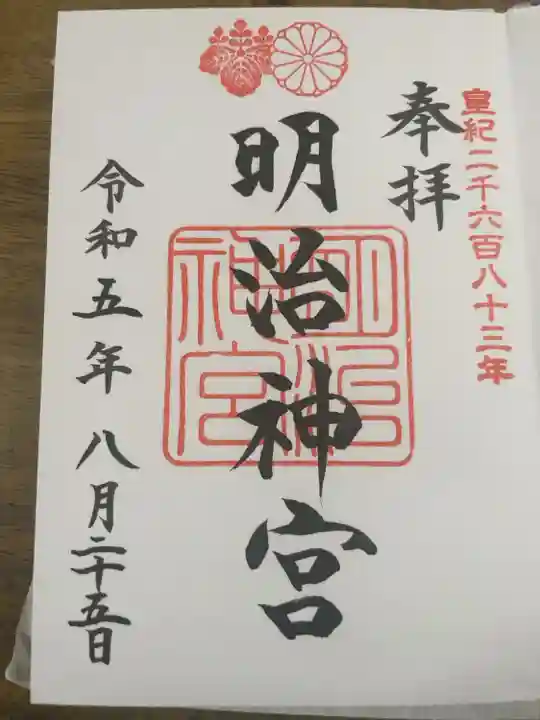 皇紀二千六百八十三年
奉拝
明治神宮
明治神宮
令和五年八月二十五日